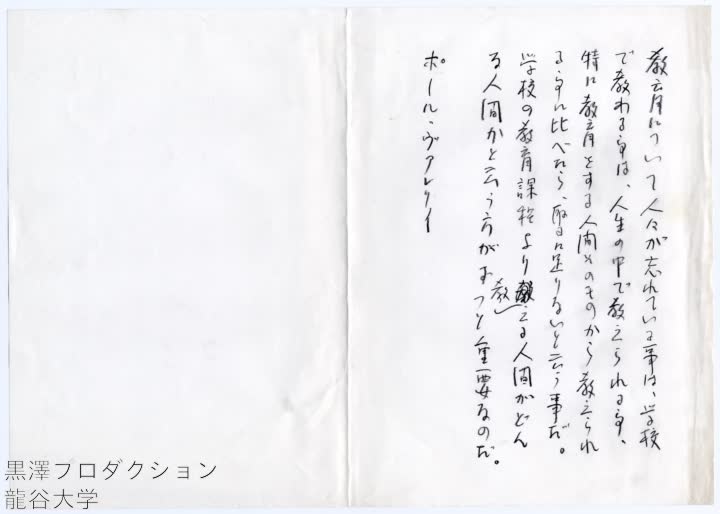 教育について人々が忘れている事は、学校
で教わる事は、人生の中で教えられる事、
特に教育をする人間そのものから教えられ
る事に比べたら、取るに足りないと云う事だ。
学校の教育課程より教える人間がどん
る人間かと云う方がずつと重要なのだ。
ポール・ヴァレリイ
黒澤プロダクション
龍谷大学